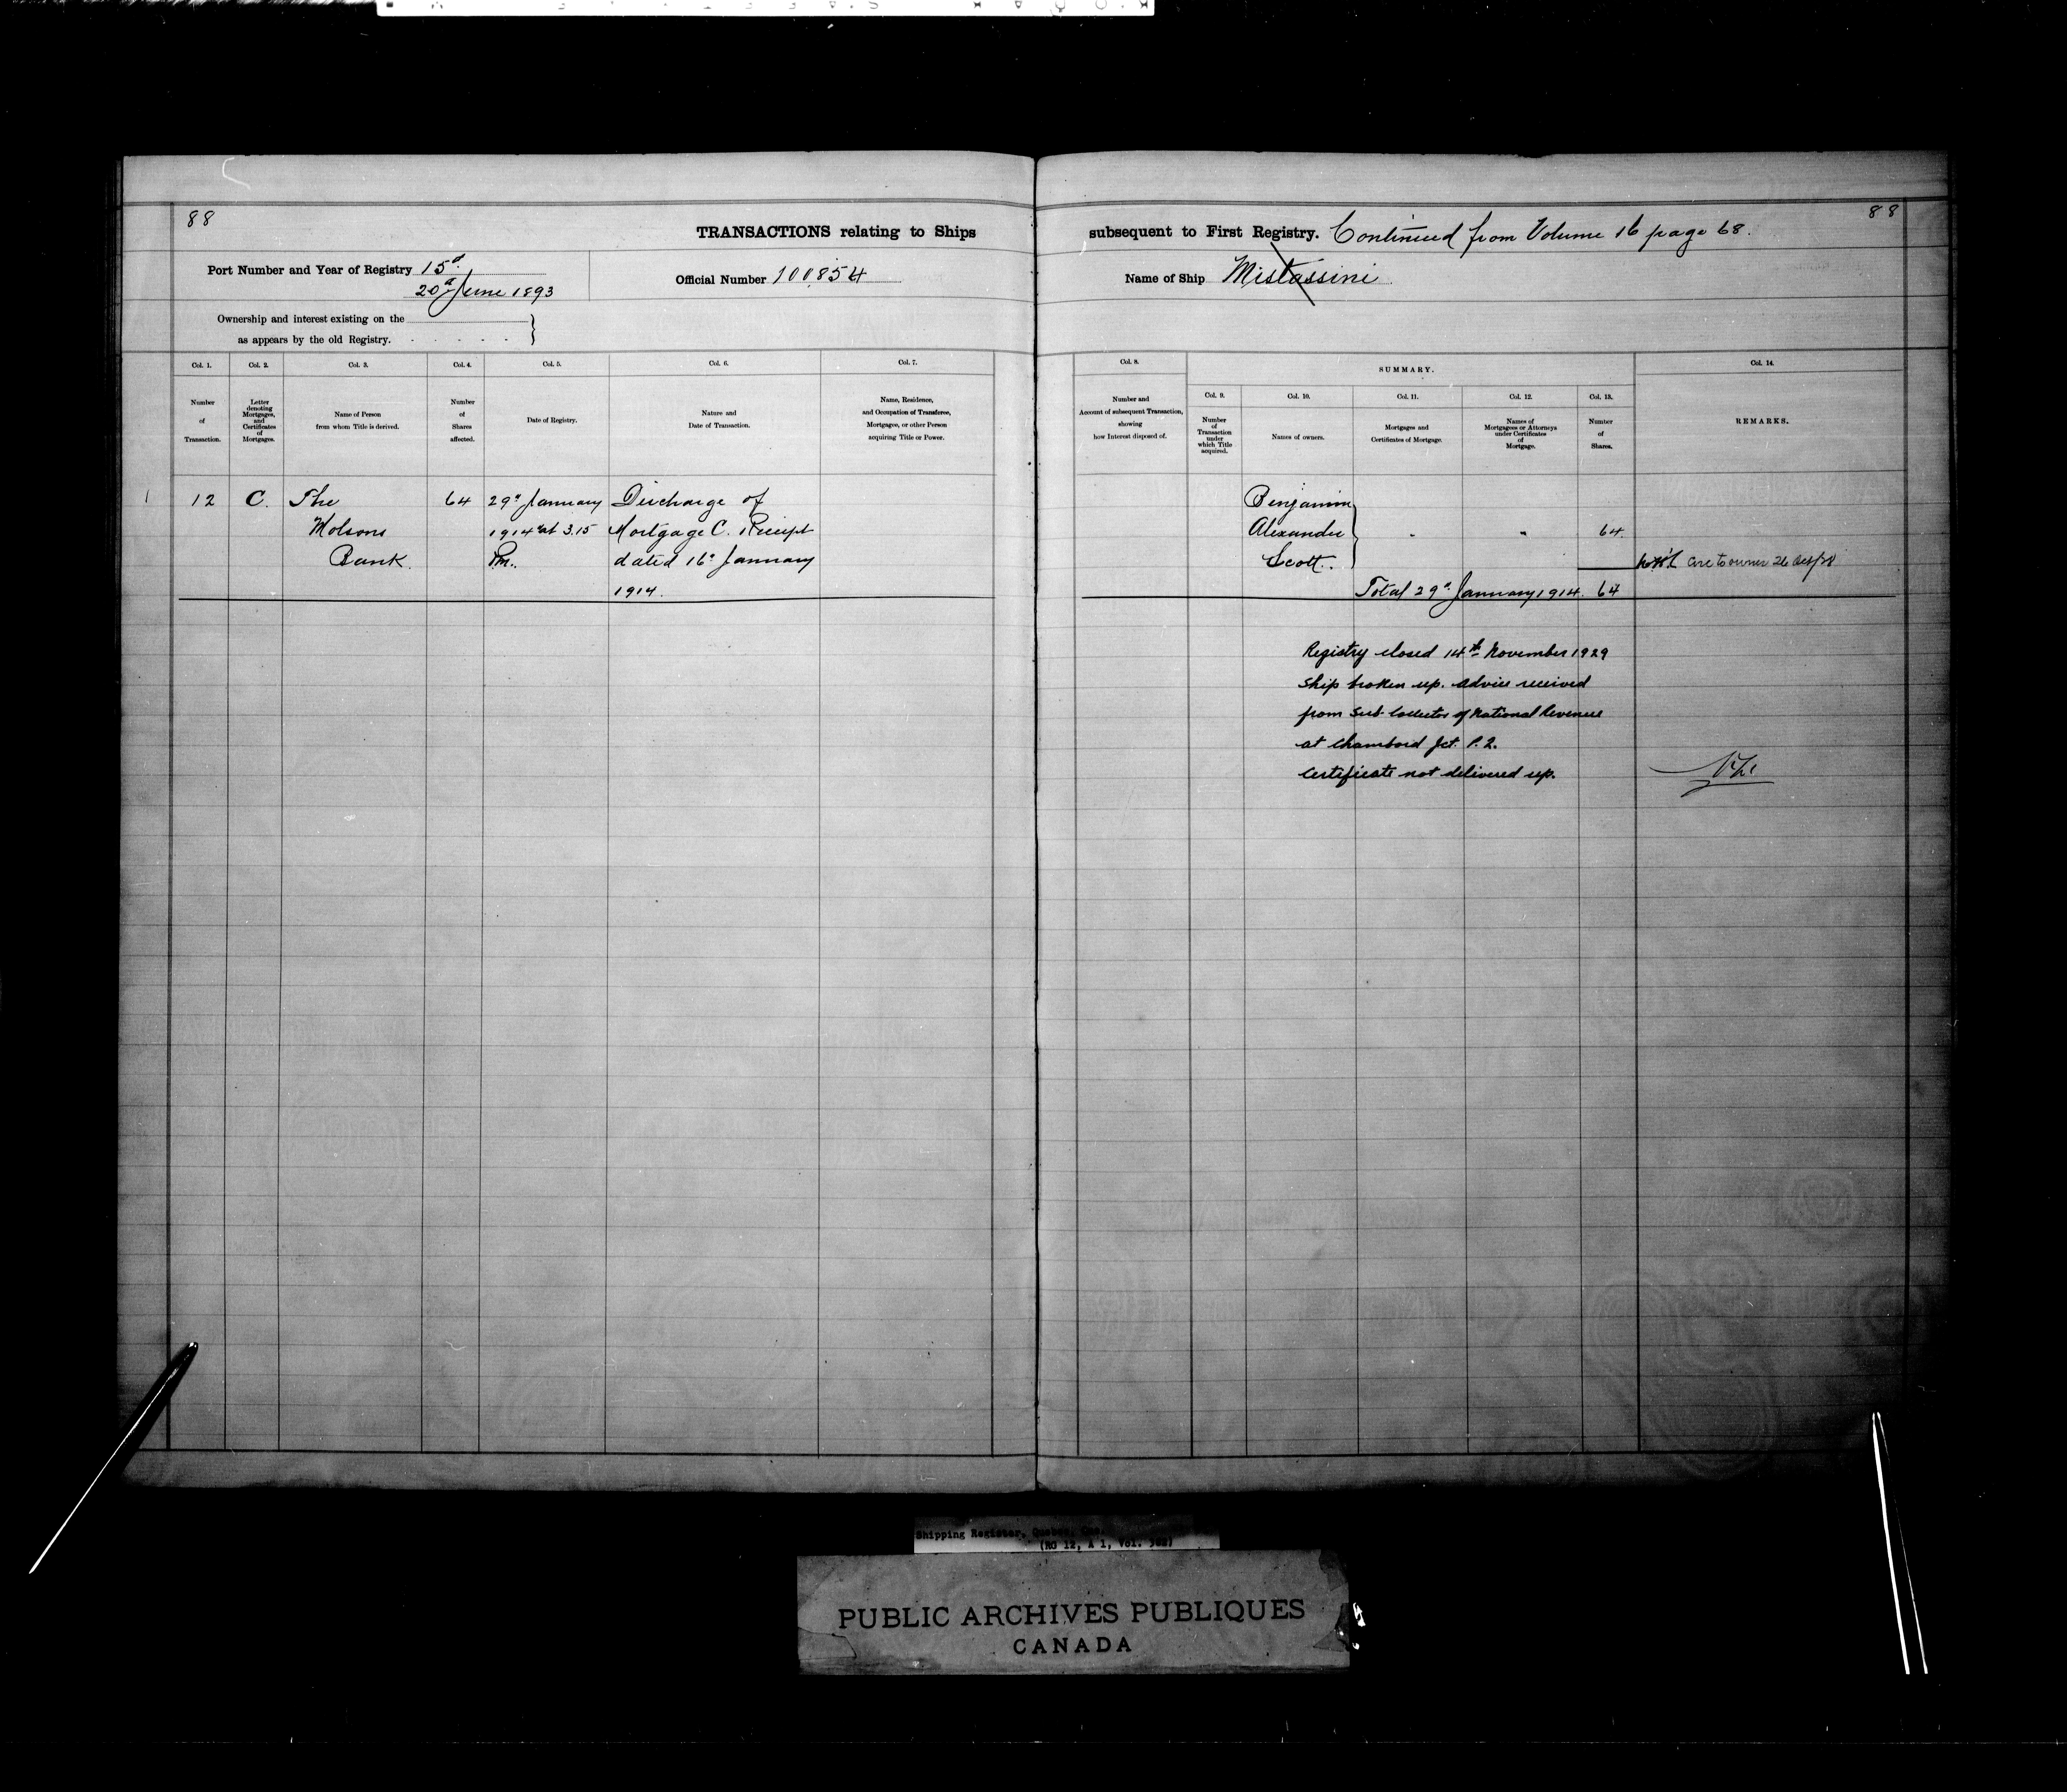 88
88
TRANSACTIONS relating to Ships
subsequent to First Registry. Continued from Volume 16 page 68.
Port Number and Year of Registry 15d
20d June 1893
Official Number 100,854
Name of Ship Mistassini
Ownership and interest existing on the
as appears by the old Registry.
Col. 1.
Number
of
Transaction.
Col. 2.
Letter
denoting
Mortgages,
and
Certificates
of
Mortgages.
Col. 3.
Name of Person
from whom Title is derived.
Col. 4.
Number
of
Shares
affected.
Col. 5.
Date of Registry.
Col. 6.
Nature and
Date of Transaction.
Col. 7.
Name, Residence,
and Occupation of Transferee,
Mortgagee, or other Person
acquiring Title or Power.
Col. 8.
Number and
Account of subsequent Transaction,
showing
how Interest disposed of.
SUMMARY.
Col. 9.
Number
of
Transaction
under
which Title
acquired.
Col. 10.
Names of owners.
Col. 11.
Mortgages and
Certificates of Mortgage.
Col. 12.
Names of
Mortgagees or Attorneys
under Certificates
of
Mortgage.
Col. 13.
Number
of
Shares.
Col. 14.
REMARKS.
12
C.
The
Molsons
Bank.
64
29d January
1914 at 3.15
Pm.
Discharge of
Mortgage C. Receipt
dated 16d January
1914.
Benjamin
Alexander
Scott.
64.
to owner 26 Oct/28
Total 29d January 1914. 64
Registry closed 14th November 1929
Ship broken up. advice received
from Sub-Collector of National Revenue
at Chambord Jct. P.2.
Certificate not delivered up.
Shipping Register, Quebec, Que.
(RG 12, A 1, Vol.
PUBLIC ARCHIVES PUBLIQUES
CANADA